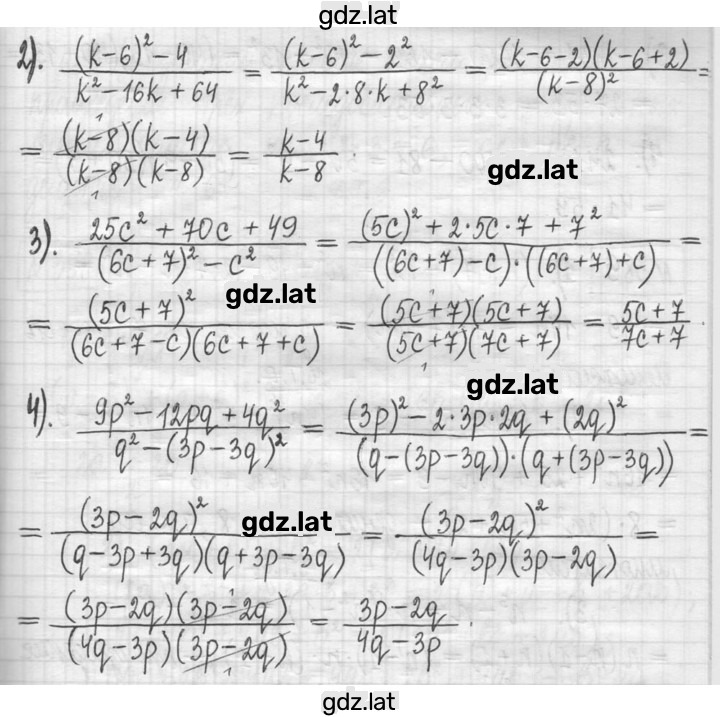 gdz.lat
2). ((k-6)² - 4)/(k² - 16k + 64) = ((k-6)² - 2²)/(k² - 2·8·k + 8²) = ((k-6-2)(k-6+2))/((k-8)²) =
= ((k-8)(k-4))/((k-8)(k-8)) = (k-4)/(k-8).
gdz.lat
3). (25c² + 70c + 49)/((6c+7)² - c²) = ((5c)² + 2·5c·7 + 7²)/(((6c+7)-c)·((6c+7)+c)) =
gdz.lat
= ((5c+7)²)/((6c+7-c)(6c+7+c)) = ((5c+7)(5c+7))/((5c+7)(7c+7)) = (5c+7)/(7c+7).
gdz.lat
4). (9p² - 12pq + 4q²)/(q² - (3p-3q)²) = ((3p)² - 2·3p·2q + (2q)²)/((q-(3p-3q))·(q+(3p-3q))) =
gdz.lat
= ((3p-2q)²)/((q-3p+3q)(q+3p-3q)) = ((3p-2q)²)/((4q-3p)(3p-2q)) =
= ((3p-2q)(3p-2q))/((4q-3p)(3p-2q)) = (3p-2q)/(4q-3p).
gdz.lat